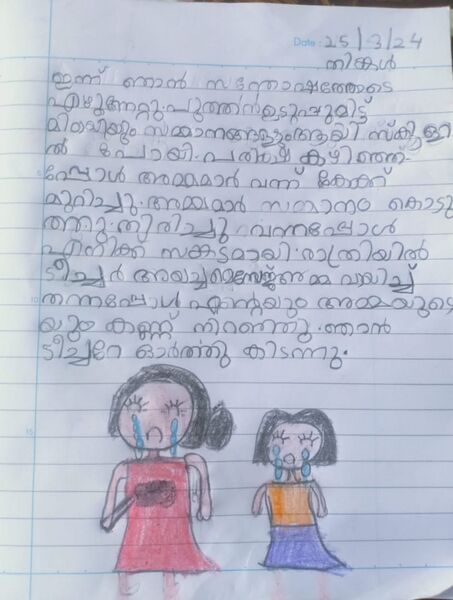 Date: 25/3/24
തിങ്കൾ
ഇന്ന് ഞാൻ സന്തോഷത്തോടെ
എഴുന്നേറ്റു. പുത്തൻഉടുപ്പുമിട്ട്
മിഠായിയും സമ്മാനങ്ങളുംആയി സ്കൂളി
ൽ പോയി. പരീക്ഷ കഴിഞ്ഞ
പ്പോൾ അമ്മമാർ വന്ന് കേക്ക്
മുറിച്ചു. അമ്മമാർ സമ്മാനം കൊടു
ത്തു. തിരിച്ചു വന്നപ്പോൾ
എനിക്ക് സങ്കടമായി. രാത്രിയിൽ
ടീച്ചർ അയച്ച മെസേജ് അമ്മ വായിച്ച്
തന്നപ്പോൾ എന്റെയും അമ്മയുടെ
യും കണ്ണ് നിറഞ്ഞു. ഞാൻ
ടീച്ചറേ ഓർത്തു കിടന്നു.
10
15